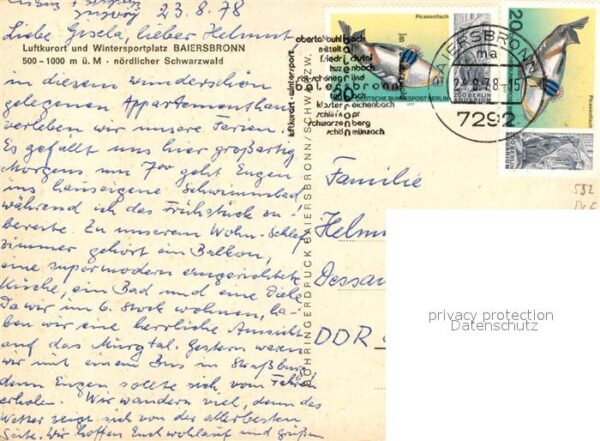 23.8.78
Liebe Gisela, lieber Helmut
Luftkurort und Wintersportplatz BAIERSBRONN
500 - 1000 m ü. M · nördlicher Schwarzwald
in diesem wunderschön
gelegenen Appartementhaus
verleben wir unsere Ferien.
Es gefällt uns hier großartig
Morgens um 7 00 geht Eugen
ins hauseigene Schwimmbad
während ich das Frühstück zu-
bereite. Zu unserem Wohn-Schlaf
zimmer gehört ein Balkon,
eine supermodern eingerichtete
Küche, ein Bad und eine Diele
Da wir im 6. Stock wohnen, ha-
ben wir eine herrliche Aussicht
auf das Murgtal. Gestern waren
wir mit einem Bus in Straßburg
denn Eugen sollte sich vom Fahren
erholen. Wir wandern viel, denn das
Wetter zeigt sich von der allerbesten
Seite. Wir hoffen Euch wohlauf und grüßen
BÖHRINGERDRUCK BAIERSBRONN/SCHWARZW.
luftkurort · wintersport
obertal buhlbach
mitteltal
friedrichstal
huzenbach
röt-schönegründ
baiersbronn
klosterreichenbach
schliffkopf
schwarzenberg
schönmünzach
Picassofisch
DEUTSCHE BUNDESPOST BERLIN
1977
BERLIN
BAIERSBRONN
ma
24.8.78-15
7292
Picassofisch
20
Familie
Helmu
Dessau
DDR
552
privacy protection
Datenschutz